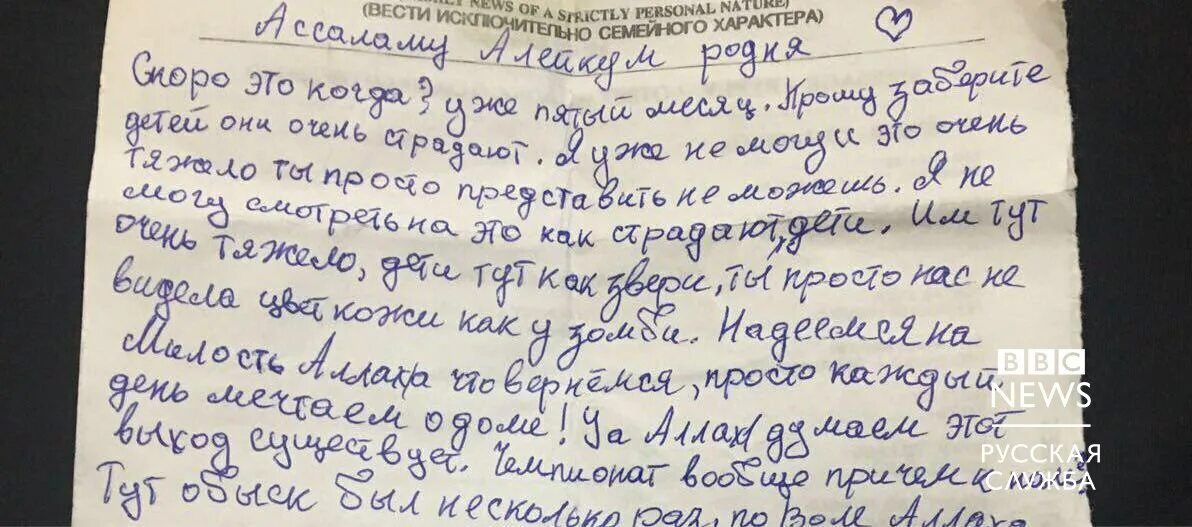 NEWS OF A STRICTLY PERSONAL NATURE)
(ВЕСТИ ИСКЛЮЧИТЕЛЬНО СЕМЕЙНОГО ХАРАКТЕРА)
Ассаламу Алейкум родня
Скоро это когда? уже пятый месяц. Прошу заберите
детей они очень страдают. Я уже не могу и это очень
тяжело ты просто представить не можешь. Я не
могу смотреть на это как страдают, дети. Им тут
очень тяжело, дети тут как звери, ты просто нас не
видела цвет кожи как у зомби. Надеемся на
Милость Аллаха что вернёмся, просто каждый
день мечтаем о доме! Уа Аллахl думаем этот
выход существует. Чемпионат вообще причем к
Тут обыск был несколько раз, по Воле Аллаха
BBC
NEWS
РУССКАЯ
СЛУЖБА